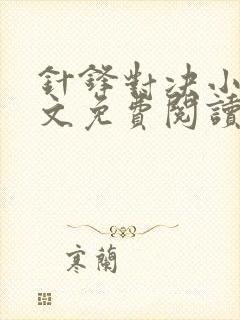 針鋒對决小
文免費閱讀
寒蘭